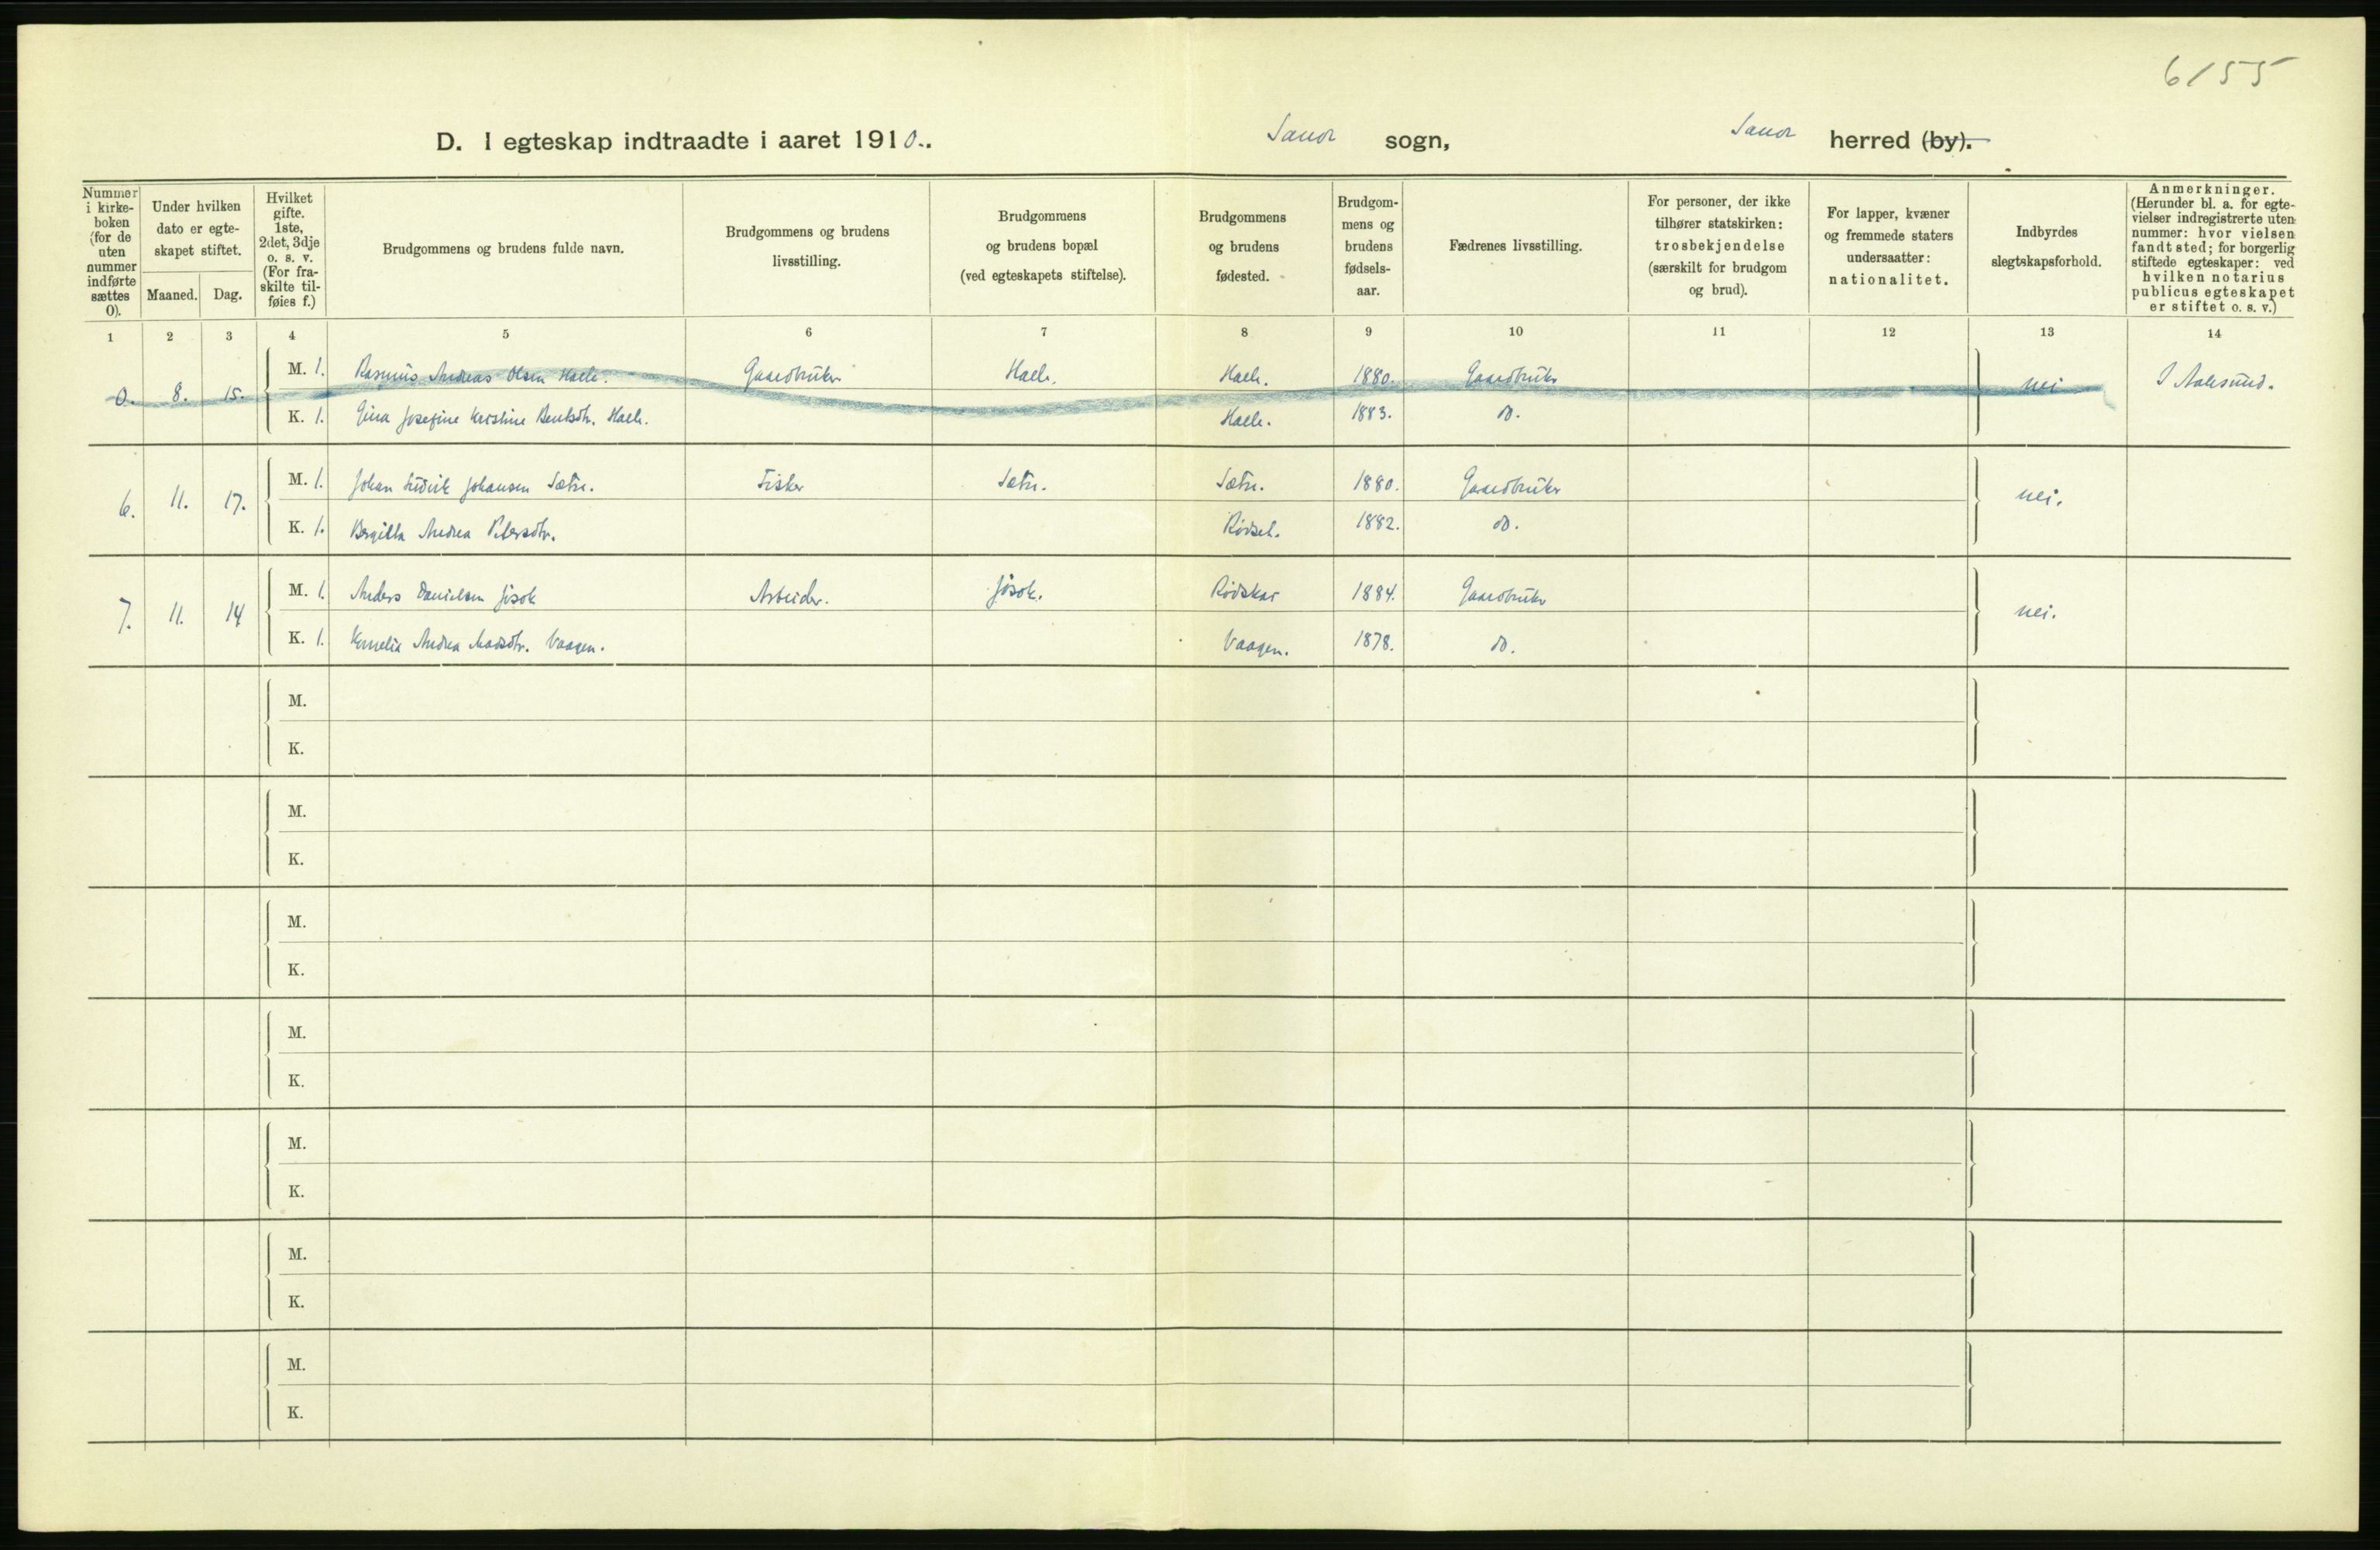 6/55
D. I egteskap indtraadte i aaret 1910. Sand sogn, Sand herred (by).
Nummer i kirke-boken (for de uten nummer indførte sættes 0).
Under hvilken dato er egte-skapet stiftet.
Maaned. Dag.
Hvilket gifte. 1ste, 2det, 3dje o. s. v. (For fra-skilte til-føies f.)
Brudgommens og brudens fulde navn.
Brudgommens og brudens livsstilling.
Brudgommens og brudens bopæl (ved egteskapets stiftelse).
Brudgommens og brudens fødested.
Brudgom-mens og brudens fødsels-aar.
Fædrenes livsstilling.
For personer, der ikke tilhører statskirken: trosbekjendelse (særskilt for brudgom og brud).
For lapper, kvæner og fremmede staters undersaatter: nationalitet.
Indbyrdes slegtskapsforhold.
Anmerkninger. (Herunder bl. a. for egte-vielser indregistrerte uten nummer: hvor vielsen fandt sted; for borgerlig stiftede egteskaper: ved hvilken notarius publicus egteskapet er stiftet o. s. v.)
1 2 3 4 5 6 7 8 9 10 11 12 13 14
0. 8. 15. M. 1. Rasmus Andreas Olsen Hatle. Gaardbruker Hatle. Hatle. 1880. Gaardbruker nei I Aalesund.
K. 1. Gina Josefine Kristine Bentsdtr. Hatle. Hatle. 1883. do.
6. 11. 17. M. 1. Johan Ludvik Johansen Sætre. Fisker Sætre. Sætre. 1880. Gaardbruker nei.
K. 1. Bergitta Andrea Petersdtr. Rødset. 1882. do.
7. 11. 14 M. 1. Anders Danielsen Jøsok Arbeider. Jøsok. Rødskar 1884. Gaardbruker nei.
K. 1. Kornelia Andrea Madsdtr. Vaagen. Vaagen. 1878. do.
M.
K.
M.
K.
M.
K.
M.
K.
M.
K.
M.
K.
M.
K.